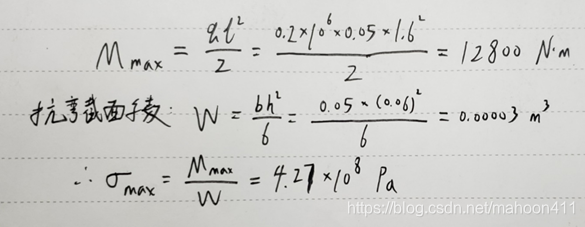 M max = ql²/2 = 0.2×10⁶×0.05×1.6²/2 = 12800 N·m
抗弯截面系数: W = bh²/6 = 0.05×(0.06)²/6 = 0.00003 m³
∴ σmax = Mmax/W = 4.27×10⁸ Pa
https://blog.csdn.net/mahoon411